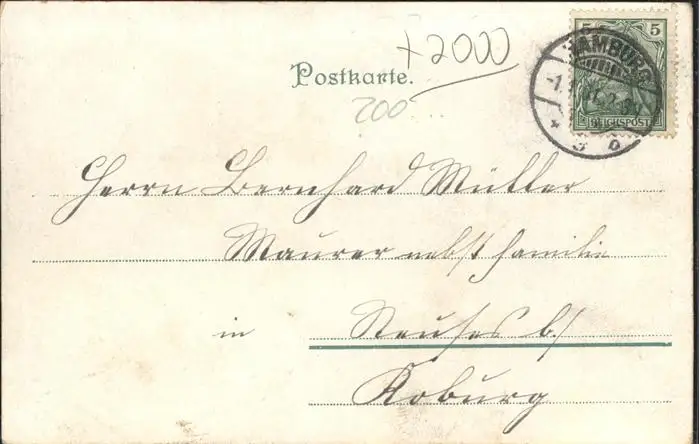 +2000
Postkarte.
200
5 5
REICHSPOST
HAMBURG
Herrn Bernhard Müller
Maurer nebst Familie
in Neuses b/
Koburg